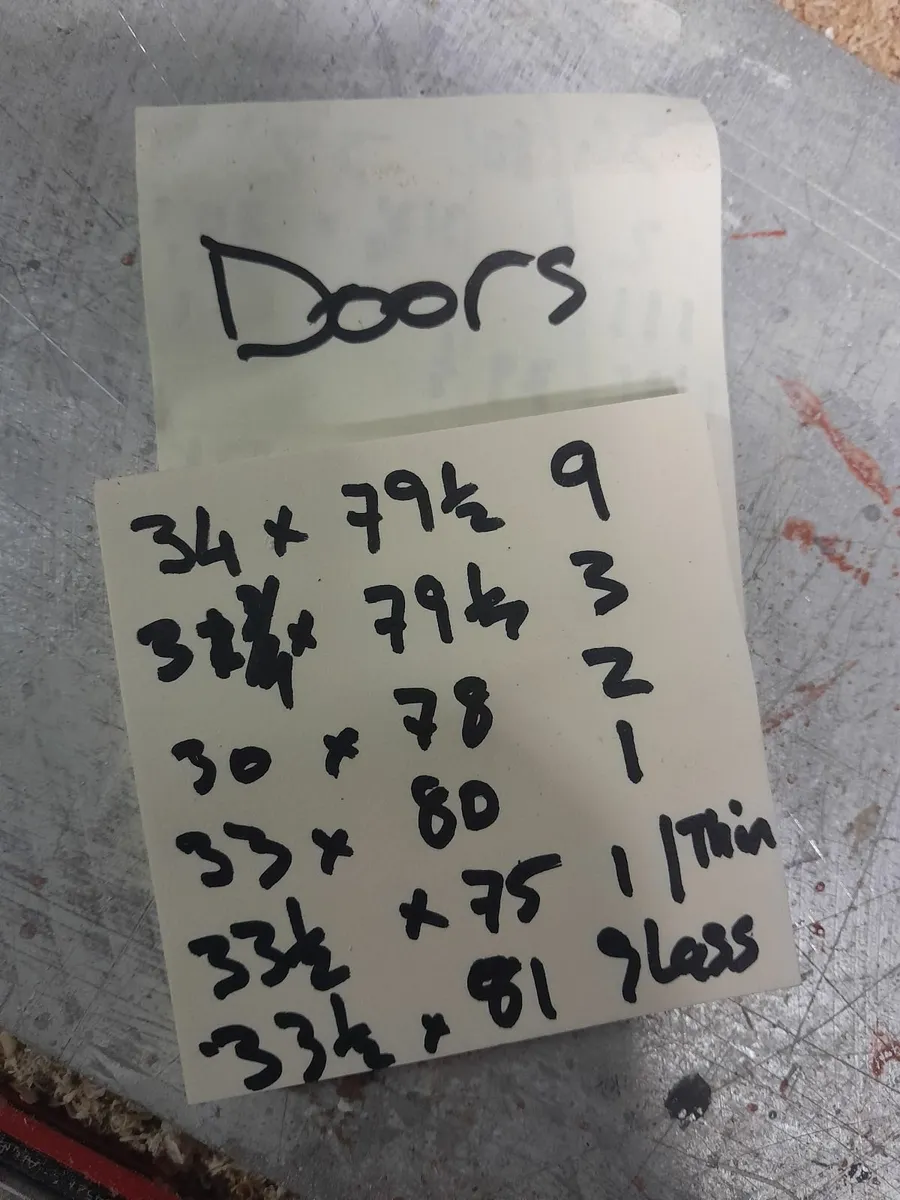 Doors
34 x 79½ 9
x 79½ 3
30 x 78 2
33 x 80 1
33½ x 75 1 / Thin
33½ x 81 glass